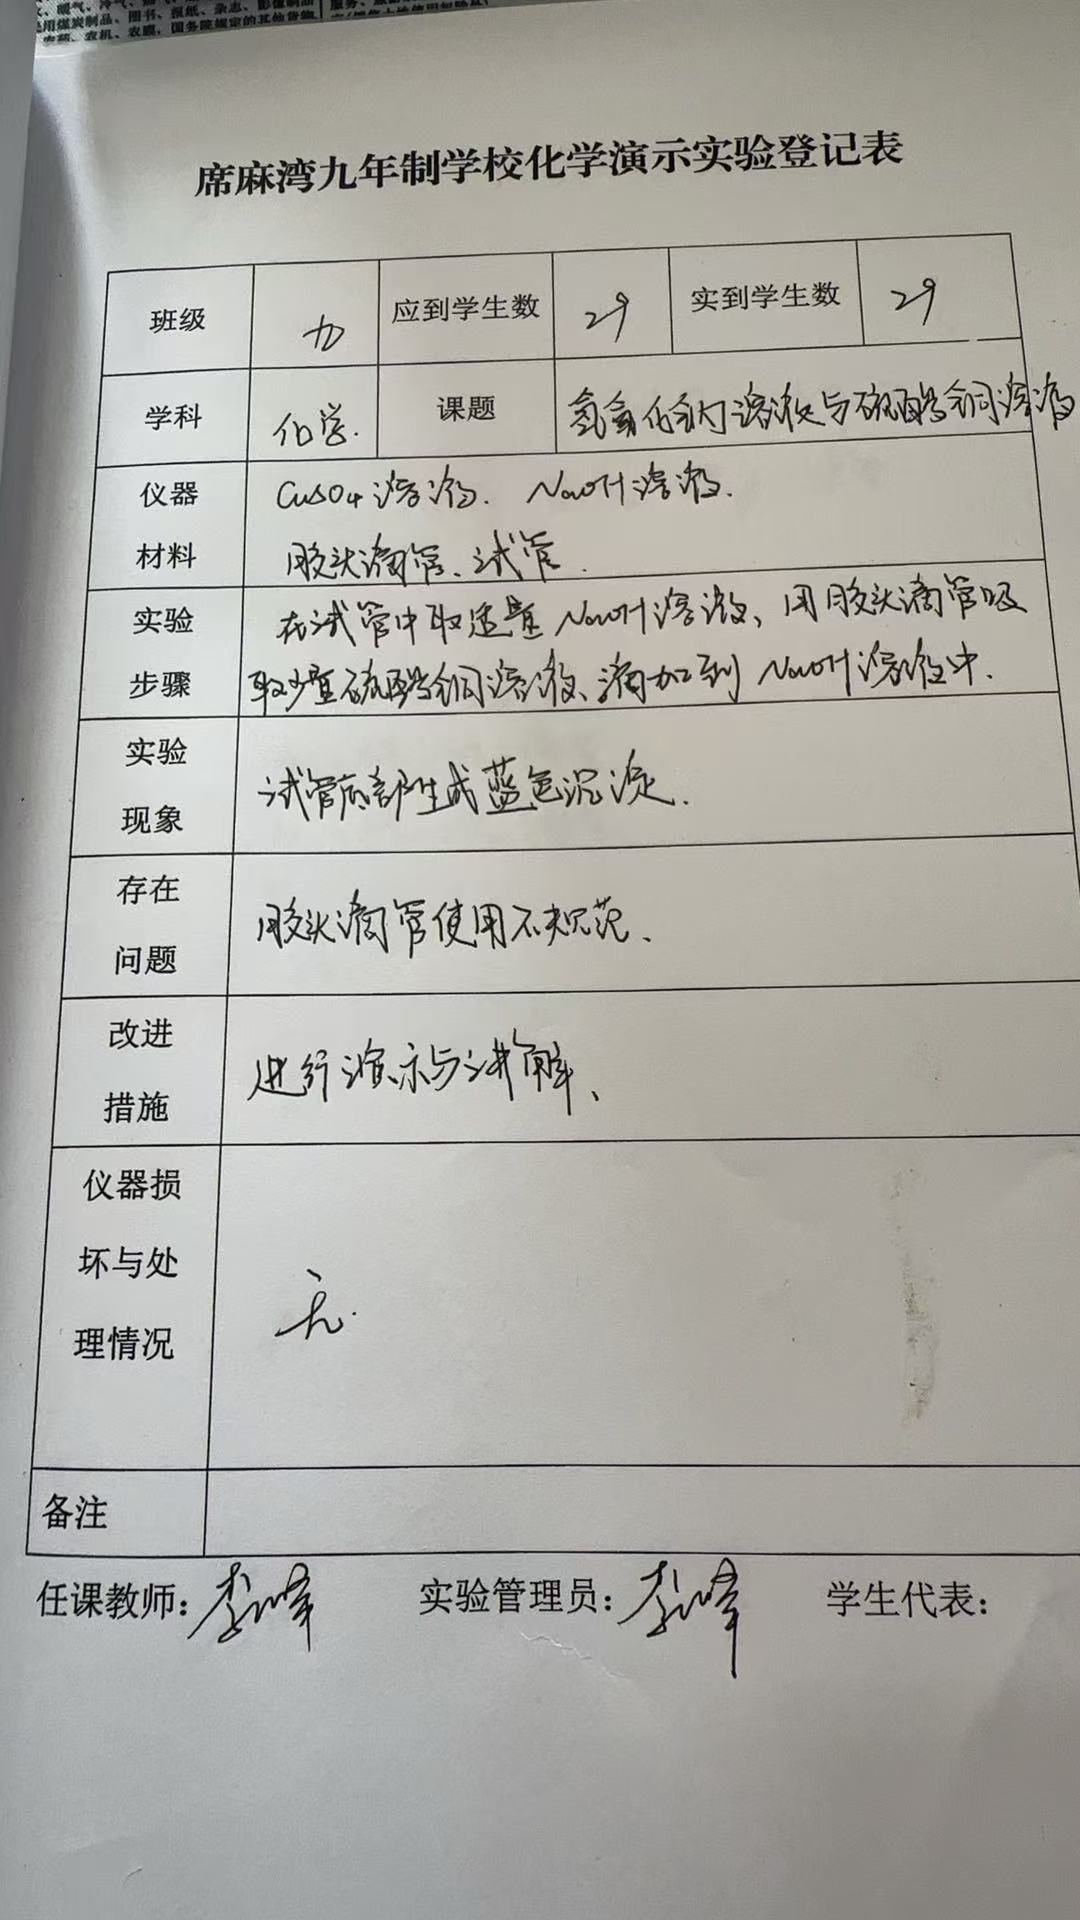 民用煤炭制品、图书、报纸、杂志、影像制品
农药、农机、农膜，国务院规定的其他货物
席麻湾九年制学校化学演示实验登记表
班级 九 应到学生数 29 实到学生数 29
学科 化学. 课题 氢氧化钠溶液与硫酸铜溶液
仪器 CuSO4溶液. NaOH溶液.
材料 胶头滴管、试管.
实验 在试管中取适量NaOH溶液、用胶头滴管吸
步骤 取少量硫酸铜溶液、滴加到NaOH溶液中.
实验
现象
试管底部生成蓝色沉淀.
存在
问题
胶头滴管使用不规范、
改进
措施
进行演示与讲解、
仪器损
坏与处
理情况
无.
备注
任课教师： 实验管理员： 学生代表：